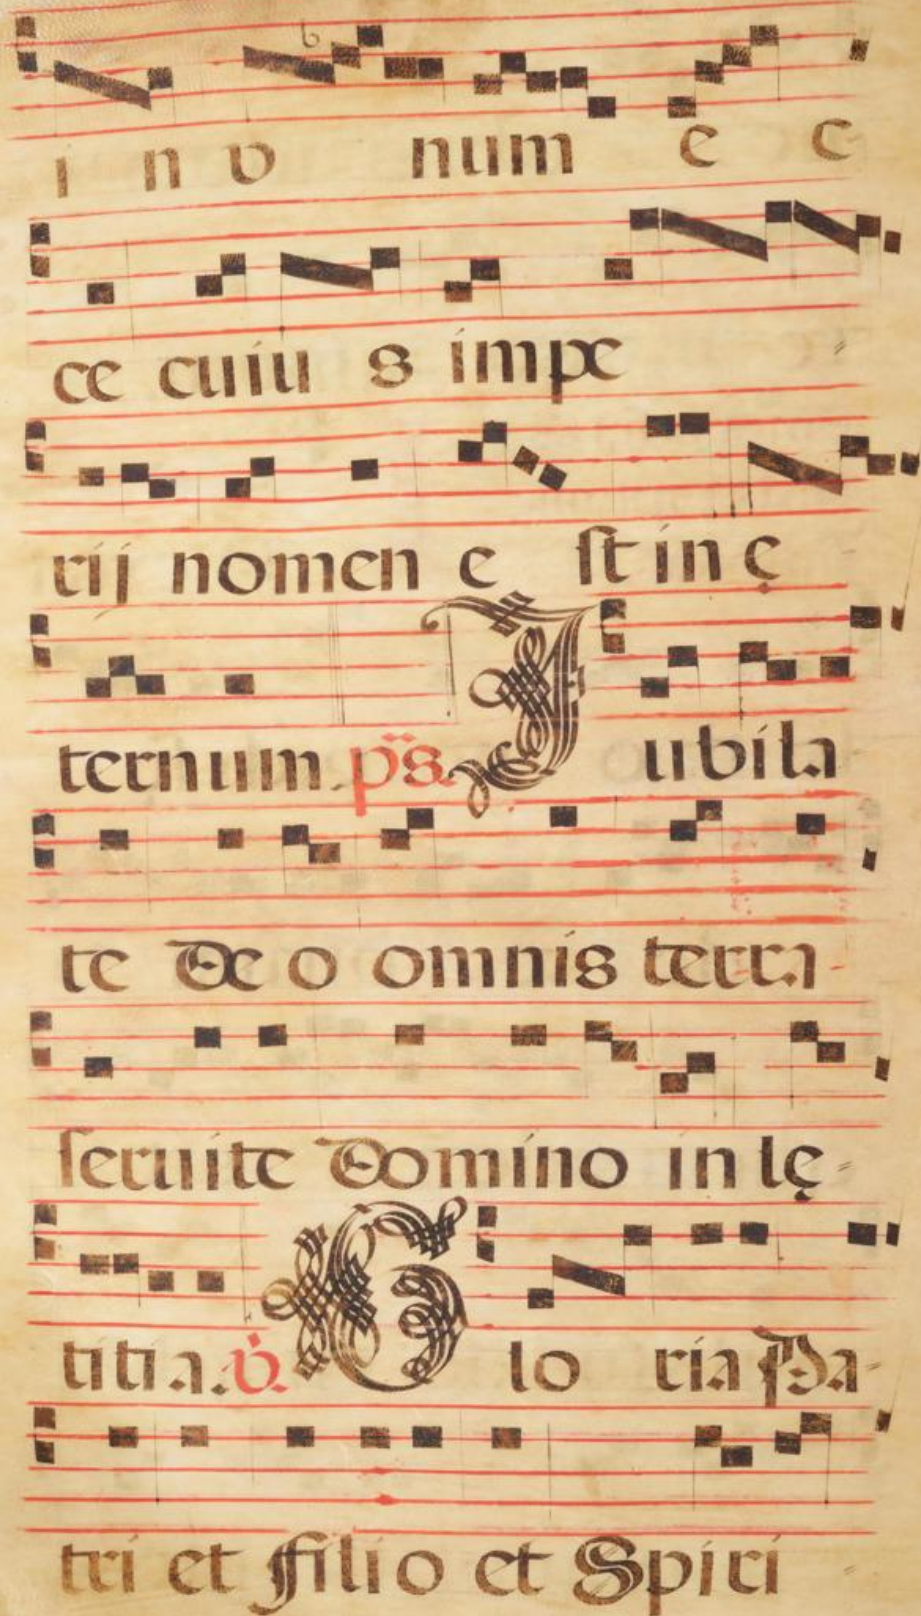 i n v num e c
ce cuiu s impe
rij nomen e st in ę
ternum ps. Jubila
te Deo omnis terra
servite Domino in lę
titia. v. Gloria Pa
tri et Filio et Spiri